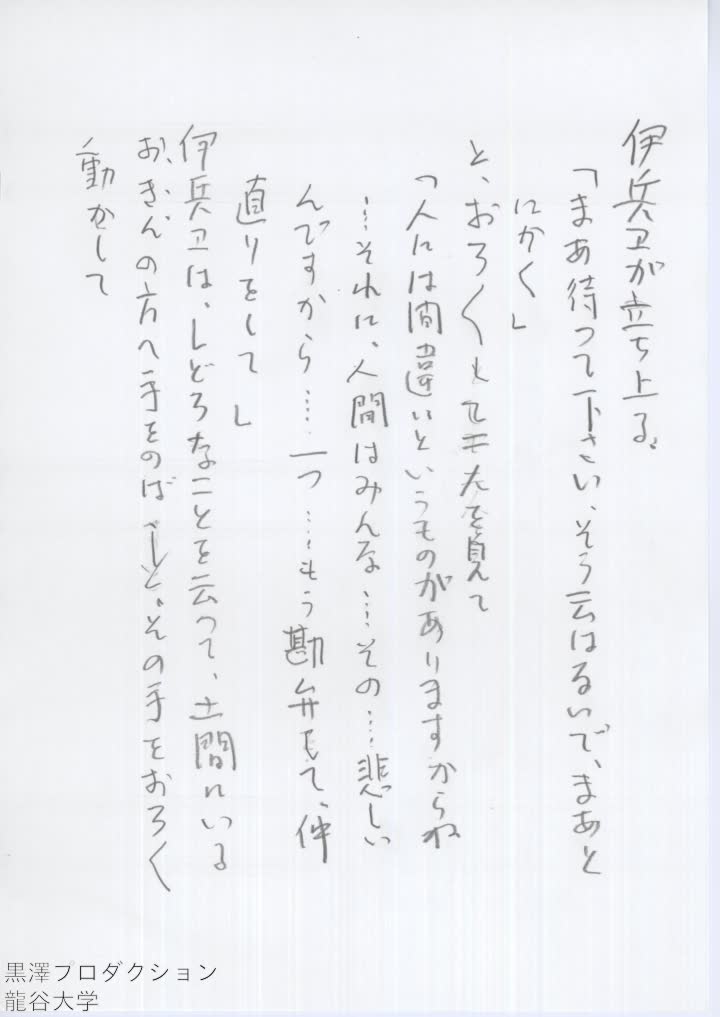 伊兵卫が立ち上る。
「まあ待って下さい、そう云はないで、まあと
にかく」
と、おろくもて夫を見て
「人には間違いというものがありますからね
…それに、人間はみんな…その…悲しい
んですから……一つ……もう勘弁して、仲
直りをして」
伊兵卫は、しどろなことを云って、土間にいる
おきんの方へ手をのばし、その手をおろく
動かして
黒澤プロダクション
龍谷大学